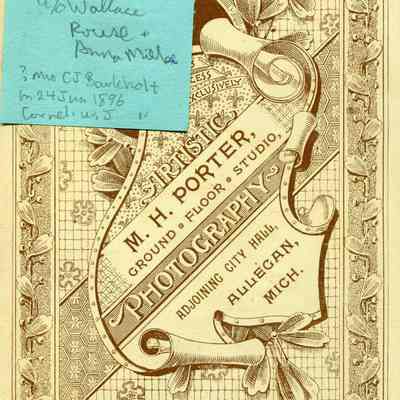 Wallace
Rouse +
Anna Miller
? m. CJ
m 24 Jun 1896
Cornelius J "
ESS
EXCLUSIVELY
ARTISTIC
M. H. PORTER,
GROUND • FLOOR • STUDIO,
PHOTOGRAPHY
ADJOINING CITY HALL,
ALLEGAN,
MICH.